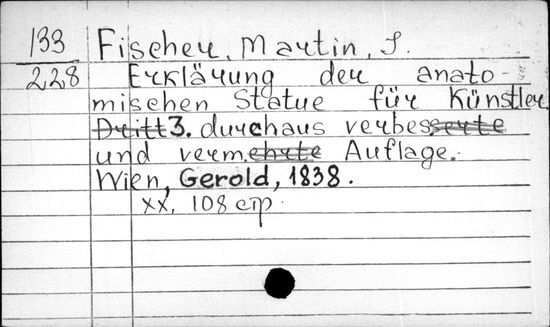 133 Fischer, Martin, J.
228 Erklärung der anato-
mischen Statue für Künstler
Dritt 3. durchaus verbesserte
und vermehrte Auflage.
Wien, Gerold, 1838.
xx, 108 стр.